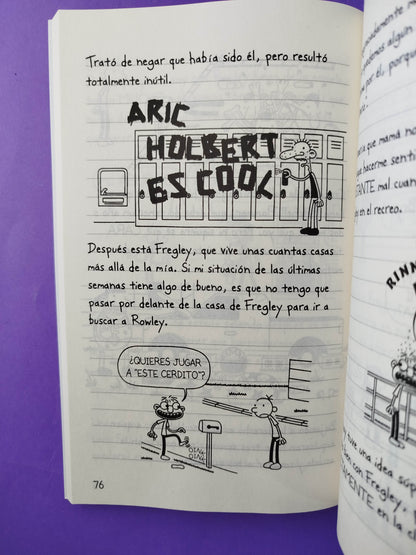 Trató de negar que había sido él, pero resultó
totalmente inútil.
ARIC
HOLBERT
ES COOL
Después está Fregley, que vive unas cuantas casas
más allá de la mía. Si mi situación de las últimas
semanas tiene algo de bueno, es que no tengo que
pasar por delante de la casa de Fregley para ir a
buscar a Rowley.
¿QUIERES JUGAR
A "ESTE CERDITO"?
76
algún
por él,
que mamá
que hacerme
mal
en el recreo.
RINN
una idea
con Fregley,
en la